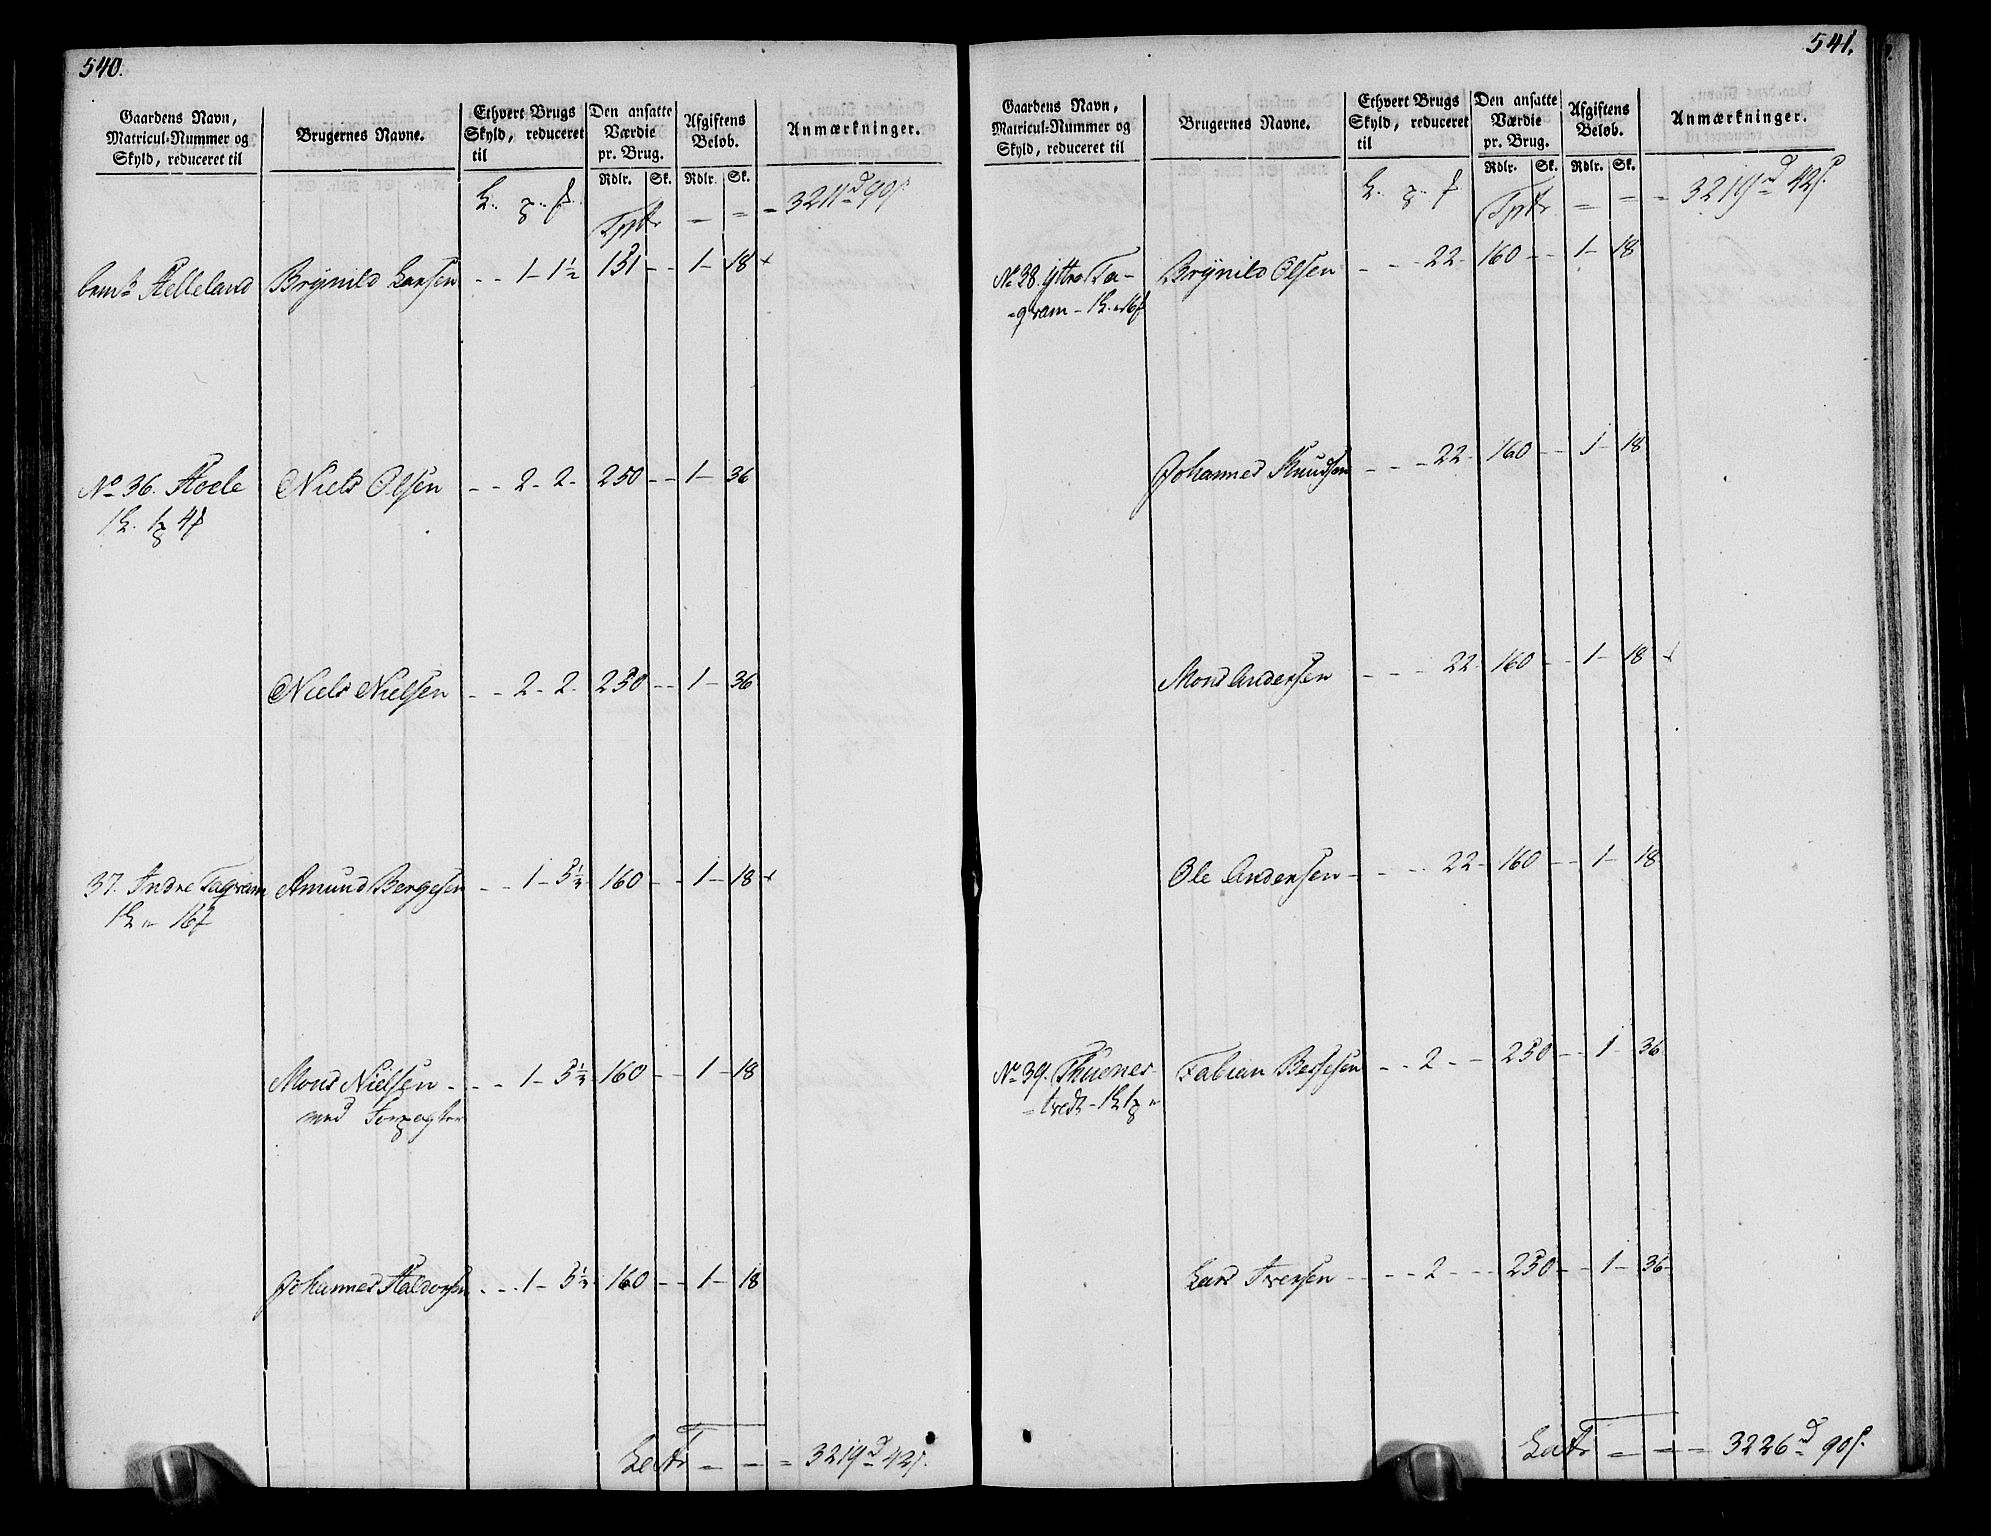 540.
Gaardens Navn,
Matricul-Nummer og
Skyld, reduceret til
Brugernes Navne.
Ethvert Brugs
Skyld, reduceret
til
Den ansatte
Værdie
pr. Brug.
Afgiftens
Beløb.
Anmærkninger.
Rdlr. Sk. Rdlr. Sk.
Tptr - = = 3211 d 99 s.
Helleland Brynild Larsen - - 1 - 1 1/2 151 - - 1 - 18 +
No 36. Hoele Niels Olsen - - 2 - 2 - 250 - - 1 - 36
Niels Nielsen - - 2 - 2 - 250 - - 1 - 36
37. Indre Taqvam Amund Bergesen - - 1 - 5 1/2 160 - - 1 - 18 +
Mons Nielsen - - - 1 - 5 1/2 160 - - 1 - 18
med Forpagter
Johannes Haldorsen - - - 1 - 5 1/2 160 - - 1 - 18
LaTr - - = 3219 d 42 s.
541.
Gaardens Navn,
Matricul-Nummer og
Skyld, reduceret til
Brugernes Navne.
Ethvert Brugs
Skyld, reduceret
til
Den ansatte
Værdie
pr. Brug.
Afgiftens
Beløb.
Anmærkninger.
Rdlr. Sk. Rdlr. Sk.
Tptr = = = 3219 d 42 s.
No 38. Yttre Ta- Brynild Olsen - - - 22 - 160 - - 1 - 18
-qvam -
Johannes Knudsen - - - 22 - 160 - - 1 - 18
Mons Andersen - - - 22 - 160 - - 1 - 18 +
Ole Andersen - - - 22 - 160 - - 1 - 18
No 39. Thuenes- Fabian Bessesen - - 2 - - 250 - - 1 - 36
-tvedt -
Lars Iversen - - - 2 - - 250 - - 1 - 36 -
LaTr = = = 3226 d 90 s.